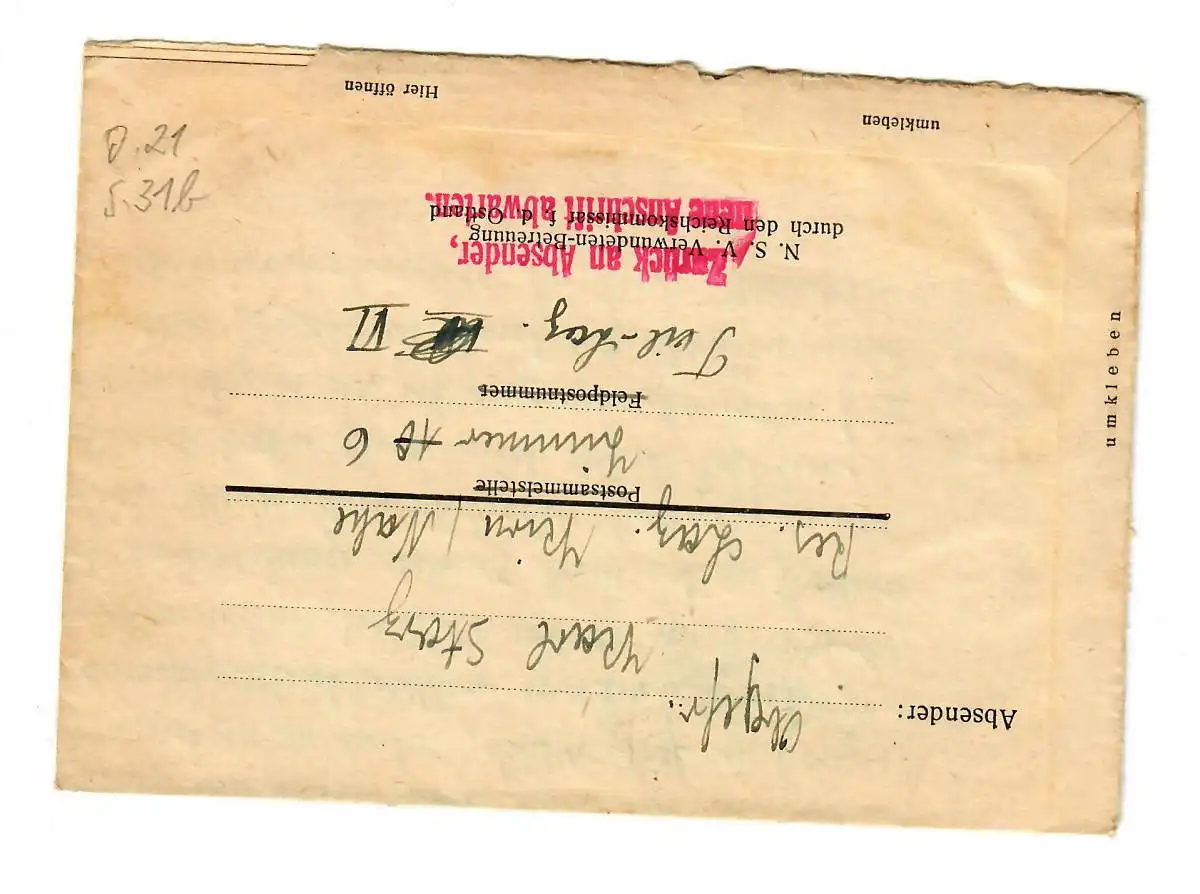 Absender:
Ogefr. Karl Sterz
Res. Laz. Kirn/Nahe
Postsammelstelle
Zimmer 6
Feldpostnummer
Teil-Laz. VI
Zurück an Absender,
neue Anschrift abwarten.
N. S. V. Verwundeten-Betreuung
durch den Reichskommissar f. d. Ostland
umkleben
Hier öffnen
umkleben
D.21
S.31b